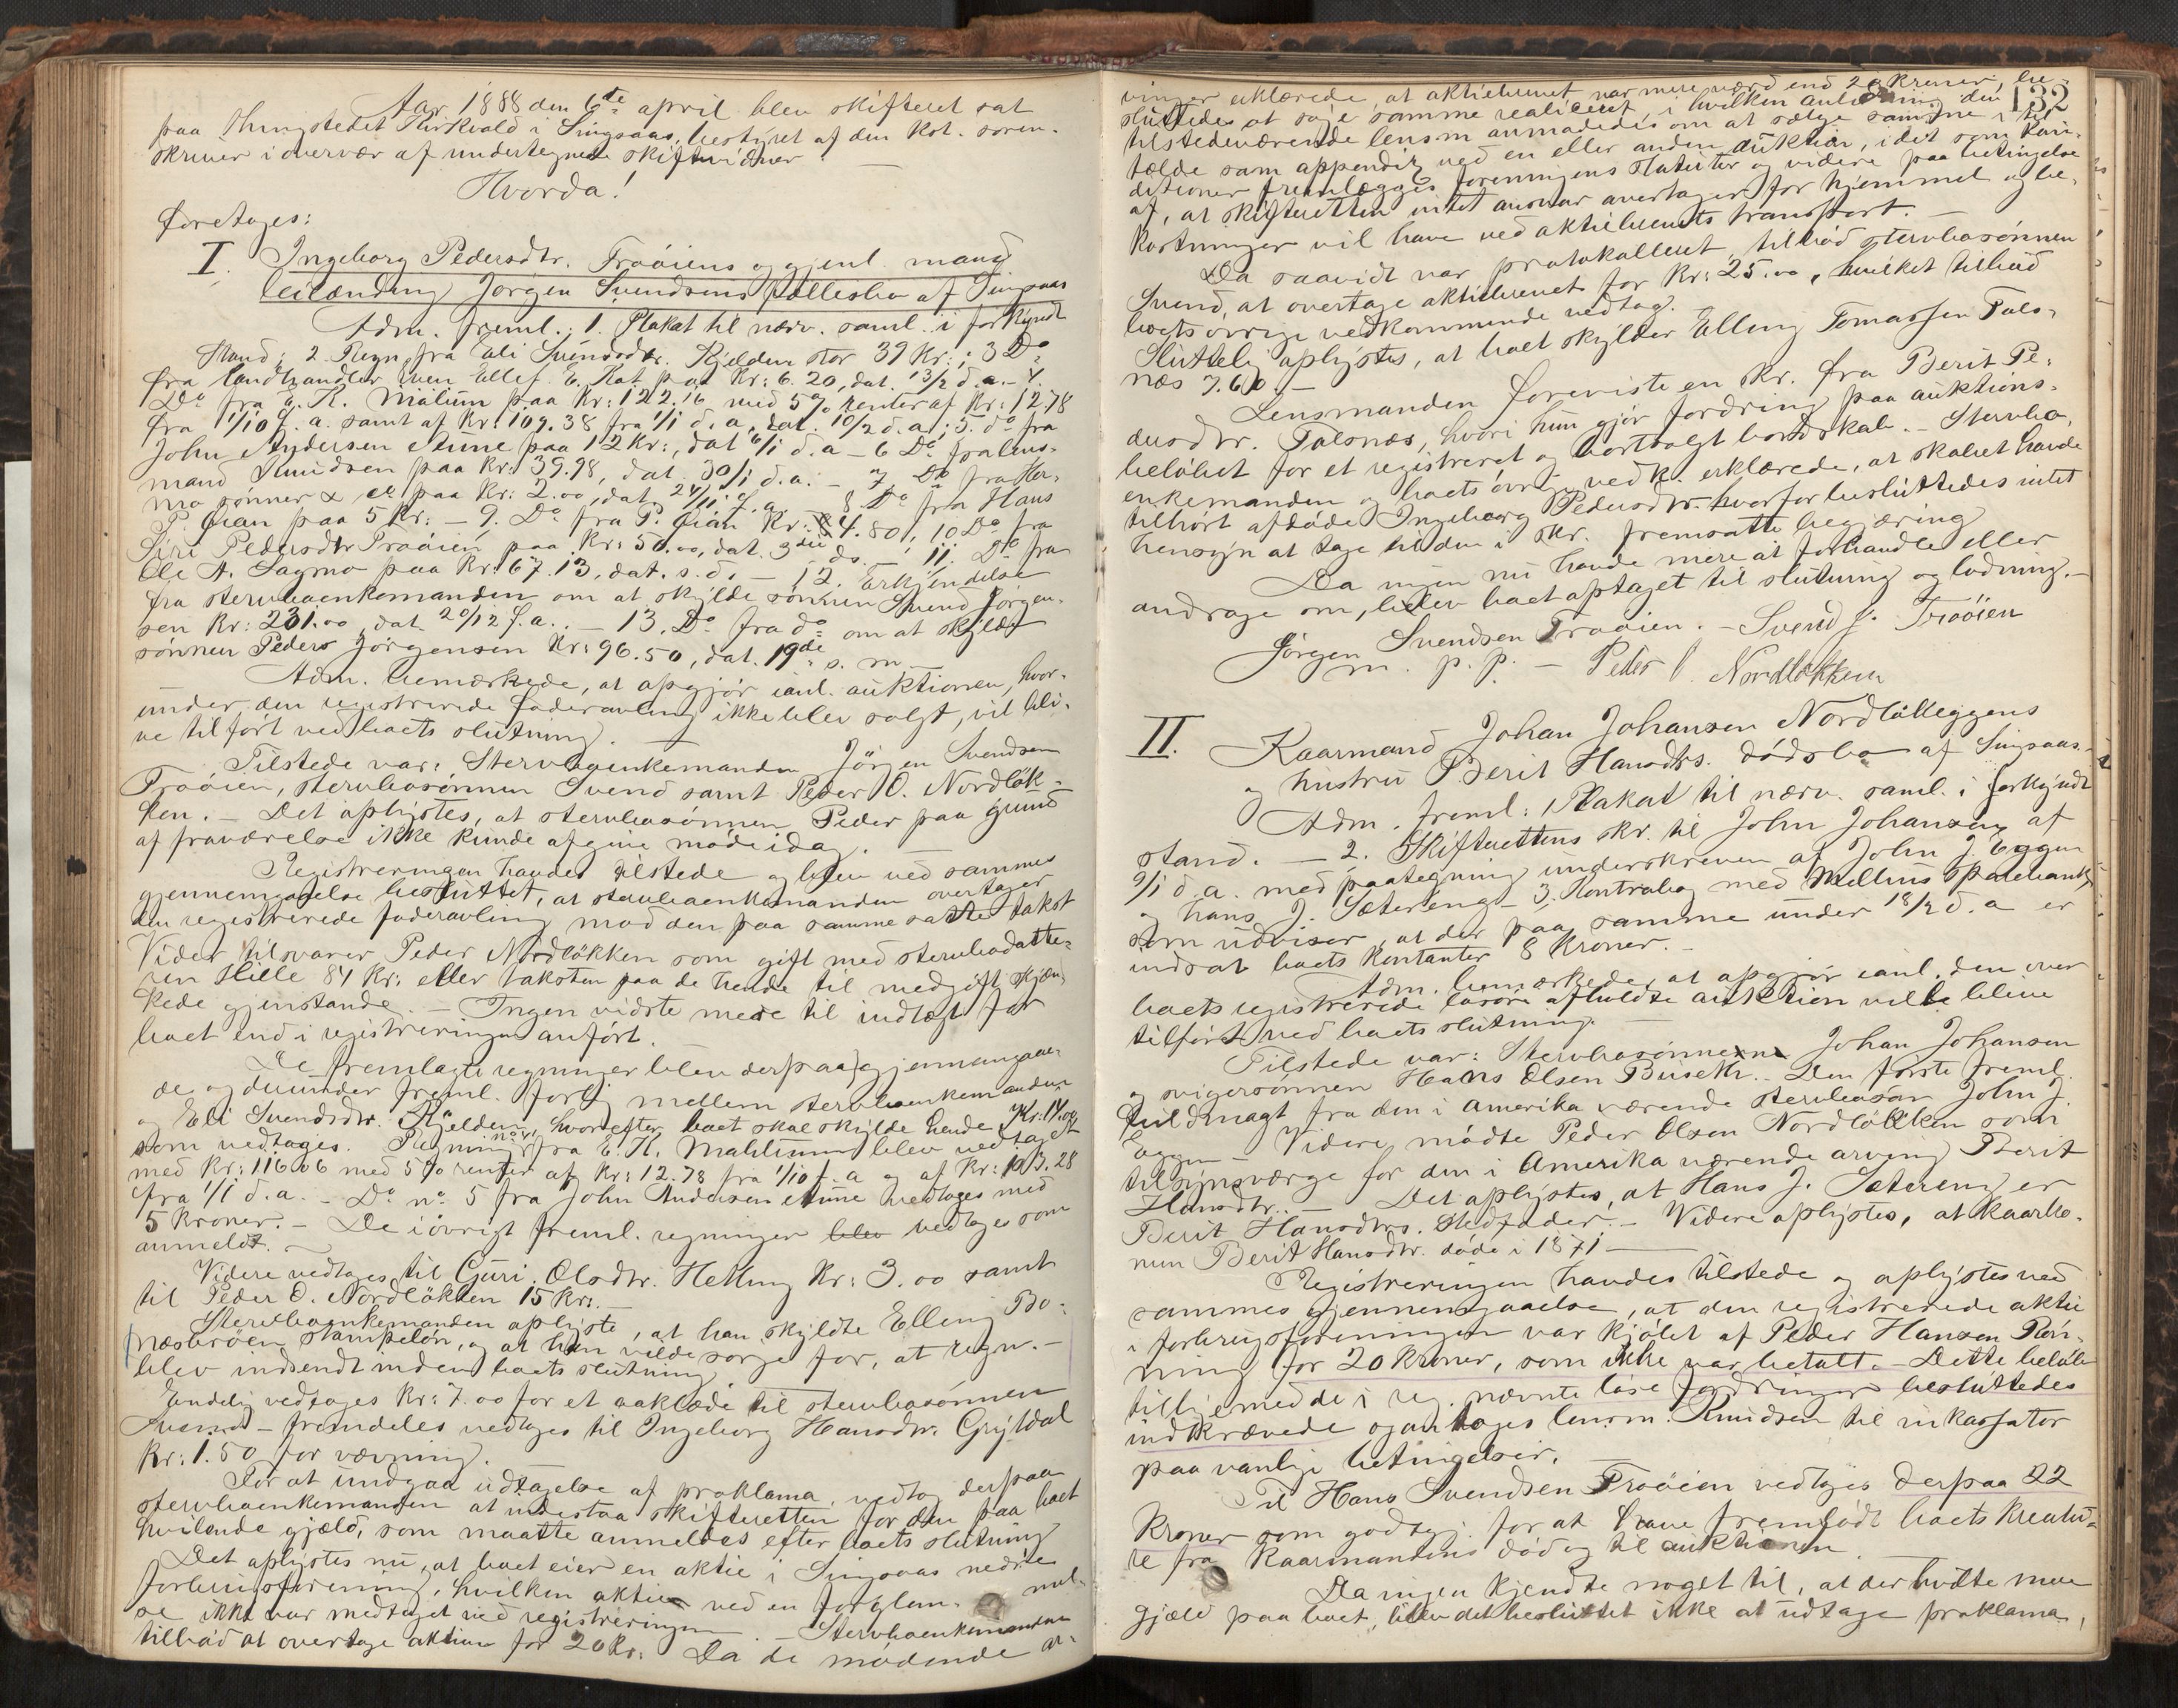 Aar 1888 den 6te april blev skifteret sat
paa thingstedet Kirkvold i Singsaas, bestyret af den kst. soren-
skriver i overvær af undertegnede skiftevidner
Hvorda!
Foretoges:
I. Ingeborg Pedersdtr. Troöiens og gjenl. mand
leilænding Jörgen Svendsens fællesbo af Singsaas
Adm. freml.: 1. Plakat til nærv. saml. i forkyndt
stand; 2. Regn. fra Eli Svendsdtr. Kjelden stor 39 Kr.; 3 Do
fra landhandler Even Ellef. E. Kot. paa Kr: 6.20, dat. 13/2 d.a. - 4.
Do fra E. K. Malum paa Kr: 122.16 med 5% renter af Kr: 12.78
fra 1/10 f. a. samt af Kr: 109.38 fra 1/1 d. a., dat. 10/2 d. a.; 5. do fra
John Andersen Aune paa 12 Kr:, dat 6/1 d. a - 6 Do fra lens-
mand Knudsen paa Kr: 39.98, dat. 30/1 d.a. - 7. Do fra Her-
mo sönner & paa Kr: 2.00, dat. 24/11 f. a. - 8 Do fra Hans
P. Gian paa 5 Kr: - 9. Do fra P. Gian Kr: 4.80, 10 Do fra
Siri Pedersdtr Troöien paa Kr: 50.00, dat. 3die ds. - 11. Do fra
Ole A. Sagmo paa Kr: 67.13, dat. s. d. - 12. Erkjendelse
fra stervboenkemanden om at skylde sönnen Svend Jörgen-
sen Kr: 231.00, dat 20/12 f. a. - 13. Do fra do om at skylde
sönnen Peder Jörgensen Kr: 96.50, dat. 19de s. m. -
Adm. bemærkede, at opgjör ianl. auktionen, hvor-
under den registrerede foderavling ikke blev solgt, vil bli-
ve tilfört ved boets slutning. -
Tilstede var: Stervboenkemanden Jörgen Svendsen
Troöien, stervbosönnen Svend samt Peder O. Nordlök-
ken. - Det oplystes, at stervbosönnen Peder paa grund
af fraværelse ikke kunde afgive möde idag. -
Registreringen havdes tilstede og blev ved sammes
gjennemgaaelse besluttet, at stervboenkemanden overtager
den registrerede foderavling mod den paa samme satte takst
Videre tilsvarer Peder Nordlökken som gift med stervbodatte-
ren Kille 84 Kr: eller taksten paa de hende til medgift skjæn-
kede gjenstande. - Ingen vidste mere til indtægt for
boet end i registreringen anfört.
De fremlagte regninger blev derpaa gjennemgaae-
de og derunder freml. forlig mellem stervboenkemanden
og Eli Svendsdtr. Kjelden, hvorefter boet skal skylde hende Kr: 14.00
som vedtoges. Regning no 4 fra E. K. Mahlum blev vedtaget
med Kr: 116.06 med 5% renter af Kr: 12.78 fra 1/10 f. a og af Kr: 103.28
fra 1/1 d. a. - Do no 5 fra John Andersen Aune vedtoges med
5 kroner. - De iövrigt freml. regninger blev vedtoges som
anmeldt.
Videre vedtoges til Guri Olsdtr. Hetling Kr: 3.00 samt
til Peder O. Nordlökken 15 Kr:
Stervboenkemanden oplyste, at han skyldte Elling Bo-
næsbröen stampelön, og at han vilde sorge for, at regn. -
blev indsendt inden boets slutning
Endelig vedtoges Kr: 7.00 for et aaklæde til stervbosönnen
Svend - fremdeles vedtoges til Ingeborg Hansdtr. Gryldal
Kr: 1.50 for vævning.
For at undgaa udtagelse af proklama vedtog derpaa
stervboenkemanden at indestaa skifteretten for den paa boet
hvilende gjæld, som maatte anmeldes efter boets slutning
Det oplystes nu, at boet eier en aktie i Singsaas nedre
forbrugsforening, hvilken aktie ved en forglem-
melse ikke var medtaget ved registreringen. - Stervboenkemanden
tilböd at overtage aktien for 20 Kr: Da de mödende ar-
132
vinger erklærede, at aktiebrevet var mere værd end 20 kroner, be-
sluttedes at söge samme realiceret, i hvilken anledning den
tilstedeværende lensm anmodedes om at sælge samme i til-
fælde som appendix ved en eller anden auktion, idet som kon-
ditioner fremlægges foreningens statuter og videre paa betingelse
af, at skifteretten intet ansvar overtager for hjemmel og be-
kostninger vil have ved aktiebrevets transport. -
Da saavidt var protokolleret, tilböd stervbosönnen
Svend, at overtage aktiebrevet for Kr: 25.00, hvilket tilbud
boets övrige vedkommende vedtog.
Sluttelig oplystes, at boet skylder Elling Tomassen Tals-
næs 7.60. -
Lensmanden foreviste en skr. fra Berit Pe-
dersdtr. Talsnæs, hvori hun gjör fordring paa auktions-
belöbet for et registreret og bortsolgt bordskab. - Stervbo-
enkemanden og boets övrige vedk. erklærede, at skabet havde
tilhört afdöde Ingeborg Pedersdtr. hvorfor besluttedes intet
hensyn at tage til den i skr. fremsatte begjæring
Da ingen nu havde mere at forhandle eller
andrage om, blev boet optaget til slutning og lodning. -
Jörgen Svendsen Troöien. - Svend J. Troöien
m. p. p. - Peder O. Nordlökken
II. Kaarmand Johan Johansen Nordlökeggens
og hustru Berit Hansdtrs. dödsbo af Singsaas.
Adm. freml: 1 Plakat til nærv. saml. i forkyndt
stand. - 2. Skifterettens skr. til John Johansen af
9/1 d. a. med paategning underskreven af John J. Eggen
og Hans J. Sætereng - 3. Kontrabog med Meldhus sparebank
som udviser, at der paa samme under 18/2 d. a er
indsat boets kontanter 8 kroner. -
Adm. bemærkede, at opgjör ianl. den over
boets registrerede lösöre afholdte auktion ville blive
tilfört ved boets slutning. -
Tilstede var: Stervbosönnen Johan Johansen
og svigersönnen Hans Olsen Busek. - Den förste freml.
fuldmagt fra den i Amerika værende stervbosön John J.
Eggen - Videre mödte Peder Olsen Nordlökken som
tilsynsværge for den i Amerika værende arving Berit
Hansdtr. - Det oplystes, at Hans J. Sætereng er
Berit Hansdtrs. stedfader. - Videre oplystes, at kaarko-
nen Berit Hansdtr. döde i 1871 -
Registreringen havdes tilstede og oplystes ved
sammes gjennemgaaelse, at den registrerede aktie
i forbrugsforeningen var kjöbt af Peder Hansen Rön-
ning for 20 kroner, som ikke var betalt. - Dette belöb
tilligemed de i reg. nævnte löse fordringer besluttedes
indkrævede og antoges lensm. Knudsen til inkassator
paa vanlige betingelser.
Til Hans Svendsen Troöien vedtoges derpaa 22
kroner som godtgj. for at have fremfödt boets kreatu-
re fra kaarmandens död og til auktionen
Da ingen kjendte noget til, at der hvilte mere
gjæld paa boet, blev det besluttet ikke at udtage proklama,